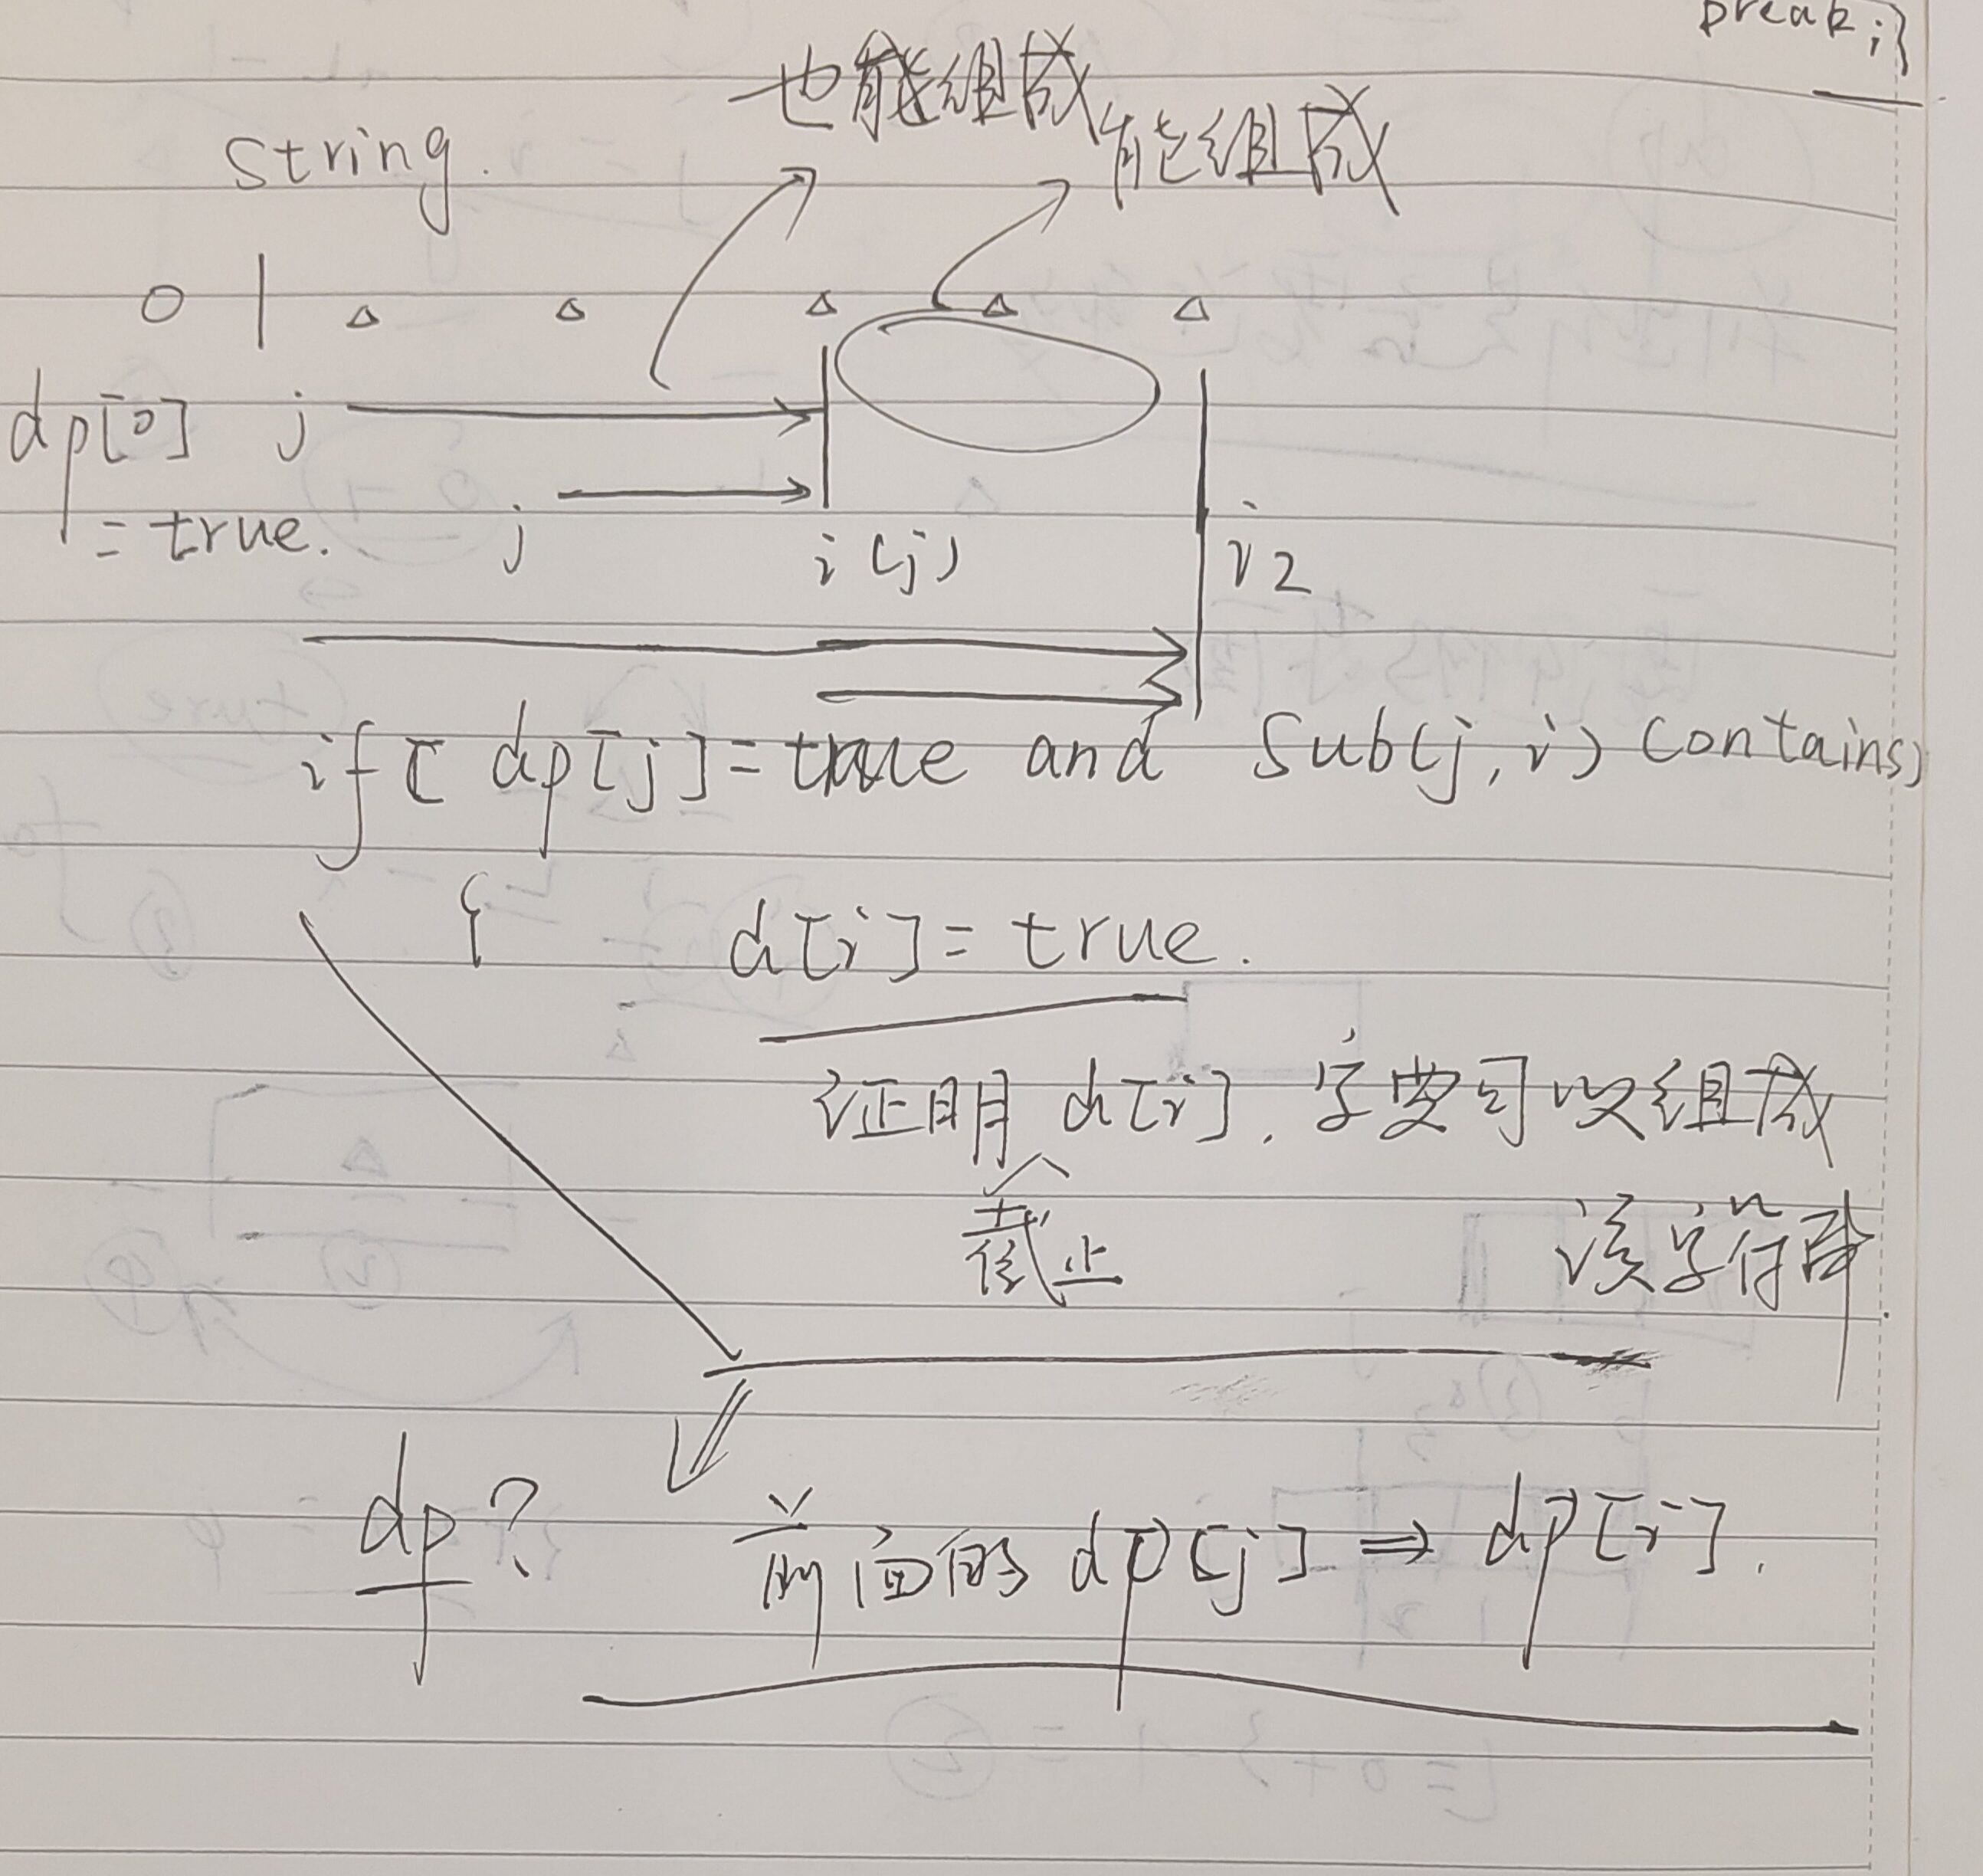 break;}
也能组成
能组成
string.
0 | △ △ △ △ △
dp[0] j
= true. j i(j) i2
if [ dp[j]=true and Sub(j,i) contains)
{ d[i]=true.
证明 d[i]. 字要可以组成
截止 该字符串.
dp? 前面的 dp[j] ⇒ dp[i].